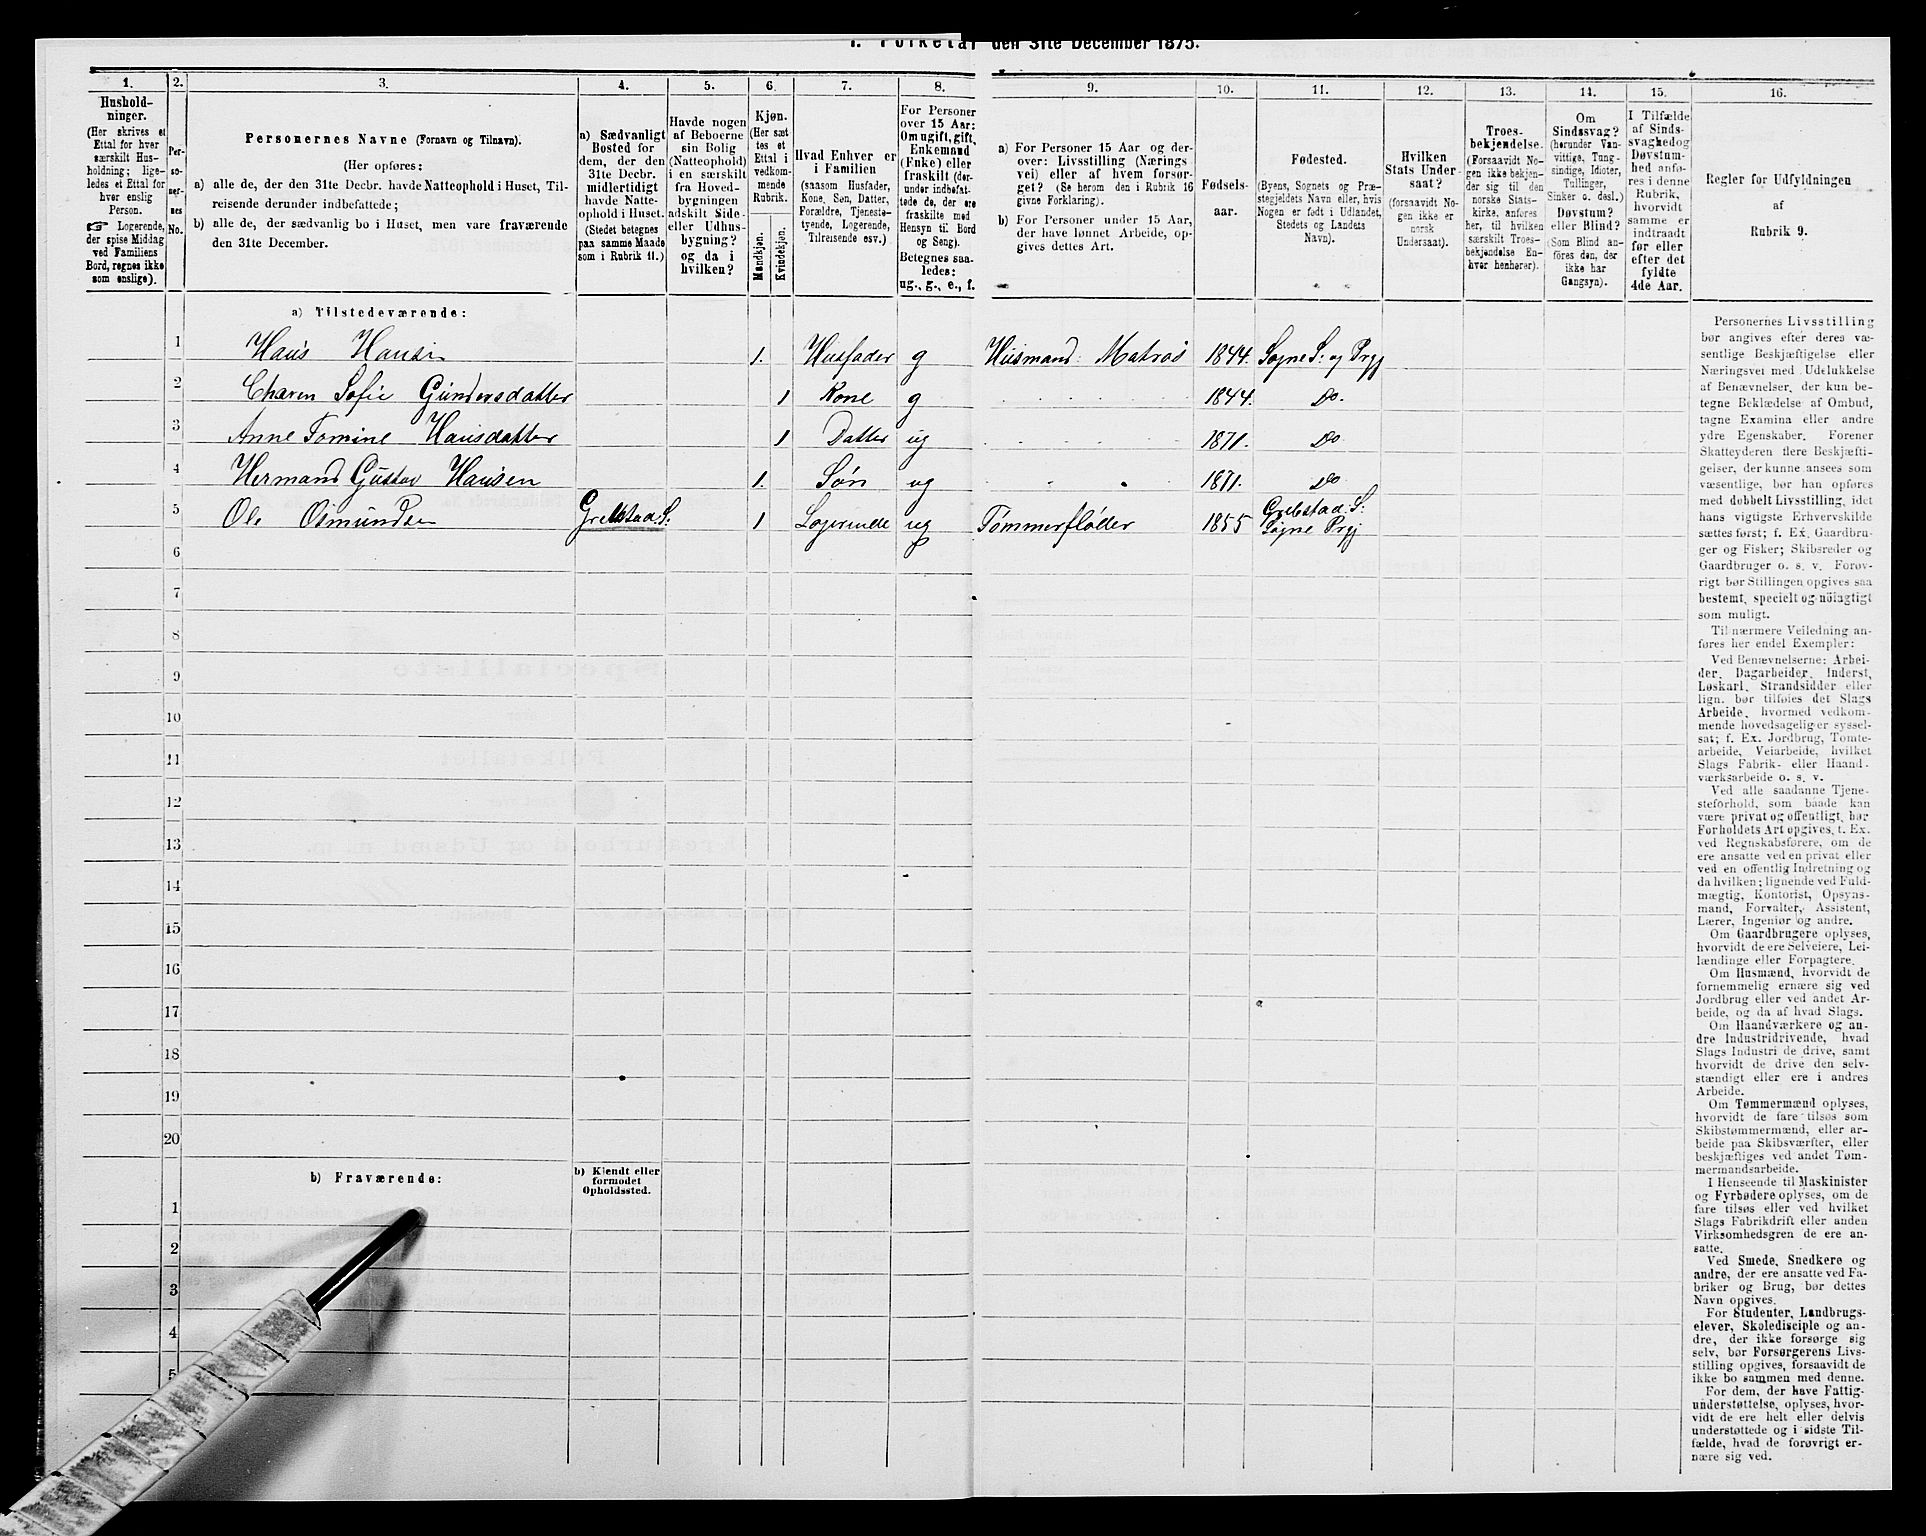 1. Folketal den 31te December 1875.
1.
Hushold-
ninger.
(Her skrives et
Ettal for hver
særskilt Hus-
holdning; lige-
ledes et Ettal for
hver enslig
Person.
☞ Logerende,
der spise Middag
ved Familiens
Bord, regnes ikke
som enslige).
2.
Per-
so-
ner-
nes
No.
3.
Personernes Navne (Fornavn og Tilnavn).
(Her opføres:
a) alle de, der den 31te Decbr. havde Natteophold i Huset, Til-
reisende derunder indbefattede;
b) alle de, der sædvanlig bo i Huset, men vare fraværende
den 31te December.
4.
a) Sædvanligt
Bosted for
dem, der den
31te Decbr.
midlertidigt
havde Natte-
ophold i Huset.
(Stedet betegnes
paa samme Maade
som i Rubrik 11.)
5.
Havde nogen
af Beboerne
sin Bolig
(Natteophold)
i en særskilt
fra Hoved-
bygningen
adskilt Side-
eller Udhus-
bygning?
og da i
hvilken?
6.
Kjøn.
(Her sæt
tes et
Ettal i
vedkom-
mende
Rubrik.
Mandkjøn.
Kvindekjøn.
7.
Hvad Enhver er
i Familien
(saasom Husfader,
Kone, Søn, Datter,
Forældre, Tjeneste-
tyende, Logerende,
Tilreisende osv.)
8.
For Personer
over 15 Aar:
Om ugift, gift,
Enkemand
(Enke) eller
fraskilt (der-
under indbefat-
tede de, der ere
fraskilte med
Hensyn til Bord
og Seng).
Betegnes saa-
ledes:
ug., g., e., f.
9.
a) For Personer 15 Aar og der-
over: Livsstilling (Nærings
vei) eller af hvem forsør-
get? (Se herom den i Rubrik 16
givne Forklaring).
b) For Personer under 15 Aar,
der have lønnet Arbeide, op-
gives dettes Art.
10.
Fødsels-
aar.
11.
Fødested.
(Byens, Sognets og Præ-
stegjeldets Navn eller, hvis
Nogen er født i Udlandet,
Stedets og Landets
Navn).
12.
Hvilken
Stats Under-
saat?
(forsaavidt No-
gen ikke er
norsk
Undersaat).
13.
Troes-
bekjendelse.
(Forsaavidt No-
gen ikke bekjen-
der sig til den
norske Stats-
kirke, anføres
her, til hvilken
særskilt Troes-
bekjendelse En-
hver henhører).
14.
Om
Sindssvag?
(herunder Van-
vittige, Tung-
sindige, Idioter,
Tullinger,
Sinker o. desl.)
Døvstum?
eller Blind?
(Som Blind an-
føres den, der
ikke har
Gangsyn).
15.
I Tilfælde
af Sinds-
svaghed og
Døvstum-
hed anfø-
res i denne
Rubrik,
hvorvidt
samme er
indtraadt
før eller
efter det
fyldte
4de Aar.
16.
Regler for Udfyldningen
af
Rubrik 9.
a) Tilstedeværende:
1 Hans Hansen 1. Husfader g Husmand: Matros 1844. Søgne S: og Prgj
2 Charen Sofie Gundersdatter 1 Kone g 1844. Do.
3 Anne Tomine Hansdatter 1 Datter ug 1871. Do
4 Hermand Gustav Hansen 1. Søn ug 1871. Do
5 Ole Osmundsen Grebstad. S: 1 Logerende ug Tømmerfløder 1855 Grebstad. S: Søgne Prgj
6
7
8
9
10
11
12
13
14
15
16
17
18
19
20
b) Fraværende:
b) Kjendt eller
formodet
Opholdssted.
1
2
3
4
5
Personernes Livsstilling
bør angives efter deres væ-
sentlige Beskjæftigelse eller
Næringsvei med Udelukkelse
af Benævnelser, der kun be-
tegne Beklædelse af Ombud,
tagne Examina eller andre
ydre Egenskaber. Forener
Skatteyderen flere Beskjæfti-
gelser, der kunne ansees som
væsentlige, bør han opføres
med dobbelt Livsstilling, idet
hans vigtigste Erhvervskilde
sættes først; f. Ex. Gaardbru-
ger og Fisker; Skibsreder og
Gaardbruger o. s. v. Forøv-
rigt bør Stillingen opgives saa
bestemt, specielt og nøiagtigt
som muligt.
Til nærmere Veiledning an-
føres her endel Exempler:
Ved Benævnelserne: Arbei-
der, Dagarbeider, Inderst,
Løskarl, Strandsidder eller
lign. bør tilføies det Slags
Arbeide, hvormed vedkom-
mende hovedsageliger syssel-
sat; f. Ex. Jordbrug, Tomte-
arbeide, Veiarbeide, hvilket
Slags Fabrik- eller Haand-
værksarbeide o. s. v.
Ved alle saadanne Tjene-
steforhold, som baade kan
være privat og offentligt, bør
Forholdets Art opgives, t. Ex.
ved Regnskabsførere, om de
ere ansatte ved en privat eller
ved en offentlig Indretning og
da hvilken; lignende ved Fuld-
mægtig, Kontorist, Opsyns-
mand, Forvalter, Assistent,
Lærer, Ingeniør og andre.
Om Gaardbrugere oplyses,
hvorvidt de ere Selveiere, Lei-
lændinge eller Forpagtere.
Om Husmænd, hvorvidt de
fornemmelig ernære sig ved
Jordbrug eller ved andet Ar-
beide, og da af hvad Slags.
Om Haandværkere og an-
dre Industridrivende, hvad
Slags Industri de drive, samt
hvorvidt de drive den selv-
stændigt eller ere i andres
Arbeide.
Om Tømmermænd oplyses,
hvorvidt de fare tilsøs som
Skibstømmermænd, eller ar-
beide paa Skibsværfter, eller
beskjæftiges ved andet Tøm-
mermandsarbeide.
I Henseende til Maskinister
og Fyrbødere oplyses, om de
fare tilsøs eller ved hvilket
Slags Fabrikdrift eller anden
Virksomhedsgren de ere an-
satte.
Ved Smede, Snedkere og
andre, der ere ansatte ved Fa-
briker og Brug, bør dettes
Navn opgives.
For Studenter, Landbrugs-
elever, Skoledisciple og an-
dre, der ikke forsørge sig
selv, bør Forsørgerens Livs-
stilling opgives, forsaavidt de
ikke bo sammen med denne.
For dem, der have Fattig-
understøttelse, oplyses, hvor-
vidt de ere helt eller delvis
understøttede og i sidste Til-
fælde, hvad de forøvrigt er-
nære sig ved.